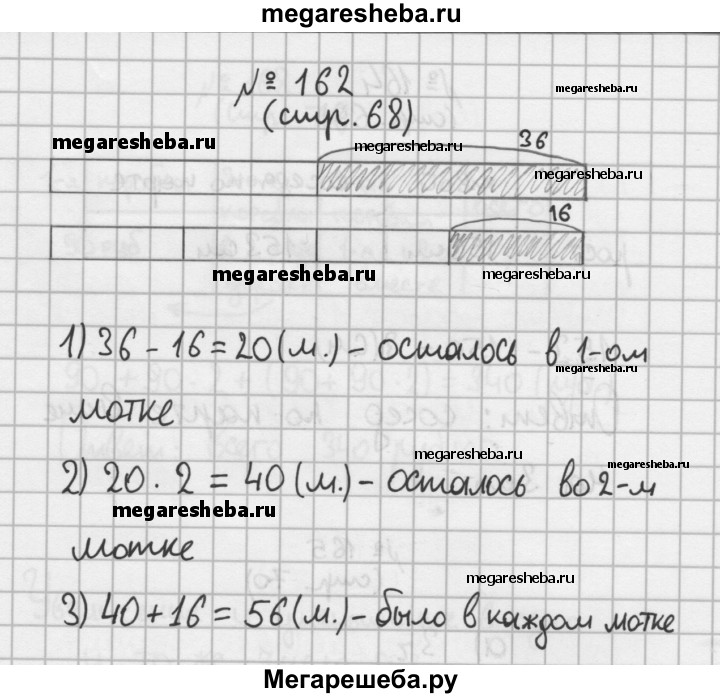 megaresheba.ru
№ 162
megaresheba.ru
(стр. 68)
megaresheba.ru
36
megaresheba.ru
megaresheba.ru
16
megaresheba.ru
megaresheba.ru
1) 36 - 16 = 20 (м.) - осталось в 1-ом
megaresheba.ru
мотке
megaresheba.ru
megaresheba.ru
2) 20 · 2 = 40 (м.) - осталось во 2-м
megaresheba.ru
мотке
megaresheba.ru
3) 40 + 16 = 56 (м.) - было в каждом мотке
Мегарешеба.ру